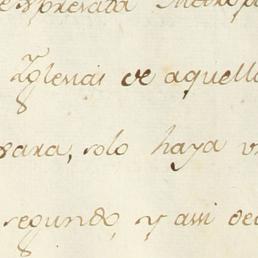 expresada Metrop
Iglesias de aquella
para, solo haya u
segundo, y assi de